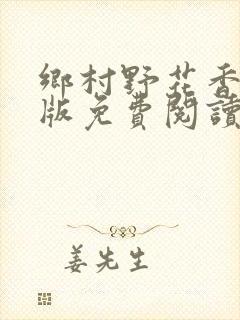 鄉村野花香
版免費閱讀
姜先生